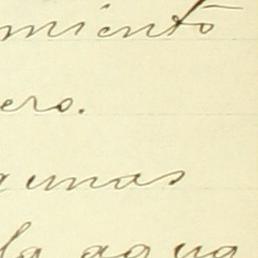 miento
ero.
gunas
la agua